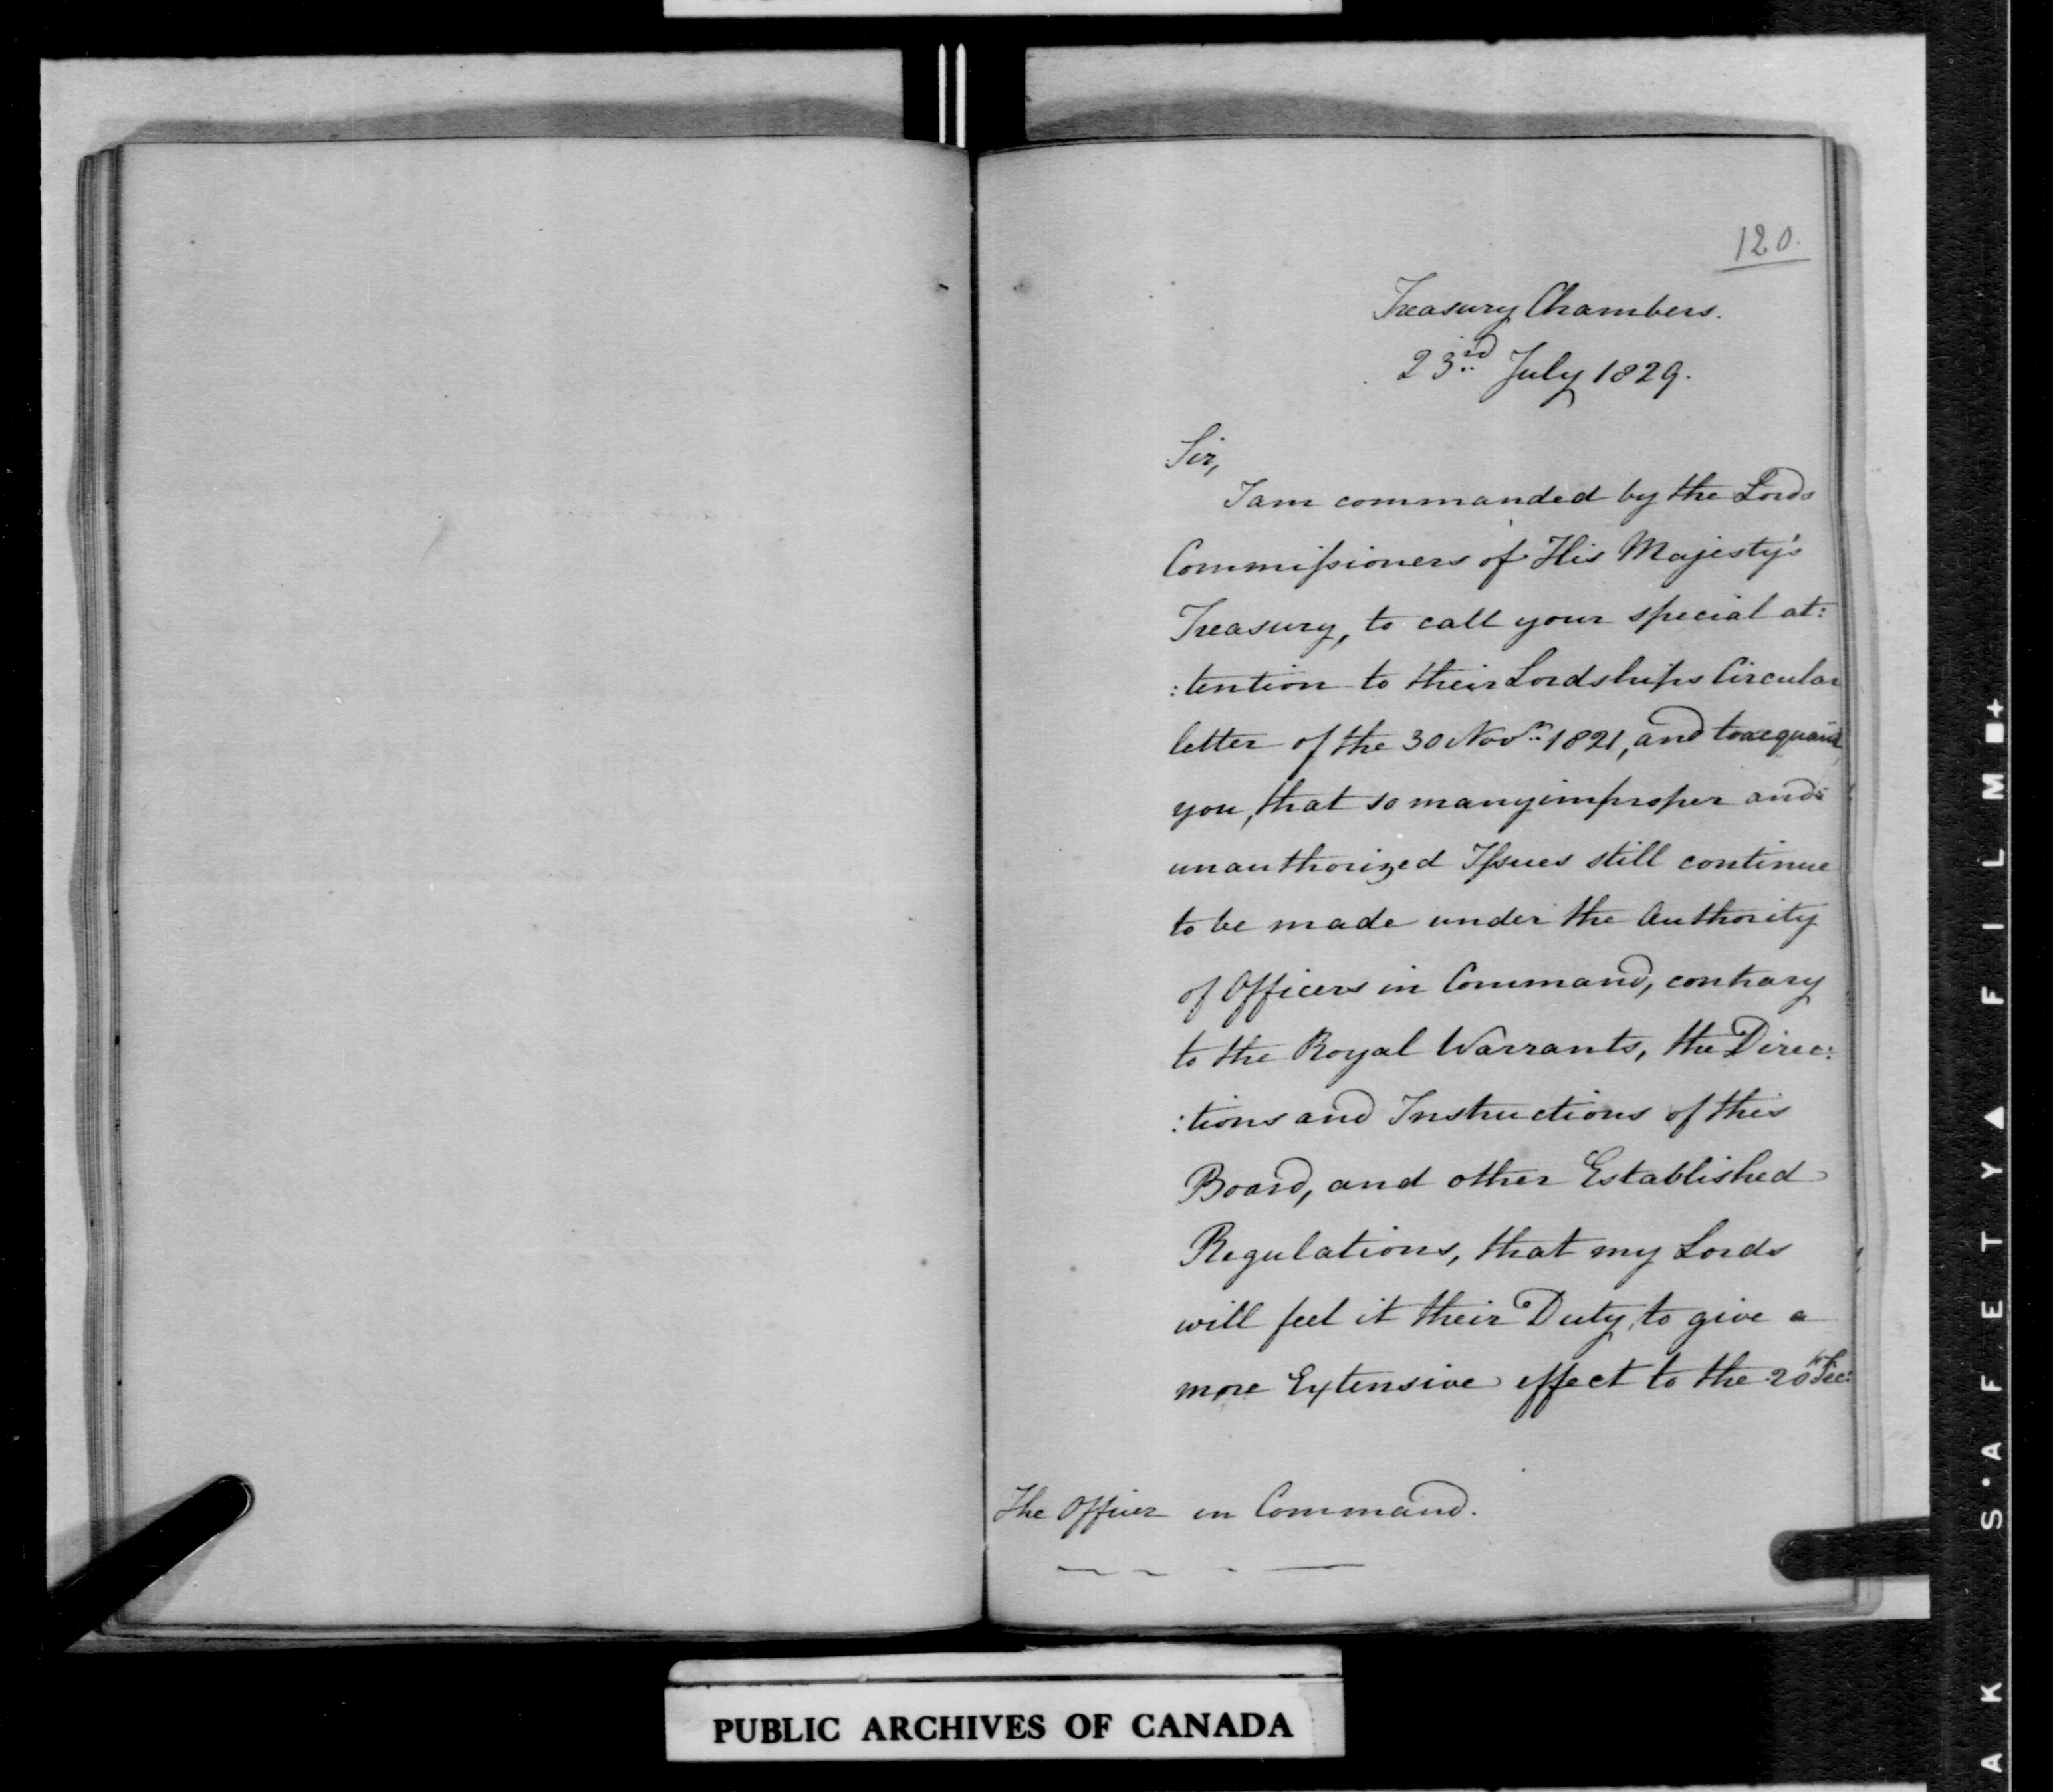 120.
Treasury Chambers.
23rd July 1829.
Sir,
I am commanded by the Lords
Commissioners of His Majesty's
Treasury, to call your special at:
:tention to their Lordships Circular
letter of the 30 Novr 1821, and to acquaint
you, that so many improper and
unauthorized Issues still continue
to be made under the Authority
of Officers in Command, contrary
to the Royal Warrants, the Direc:
:tions and Instructions of this
Board, and other Established
Regulations, that my Lords
will feel it their Duty, to give a
more Extensive effect to the 20th Sec:
The Officer in Command.
PUBLIC ARCHIVES OF CANADA
A K S'A F E T Y ▲ F I L M ■+